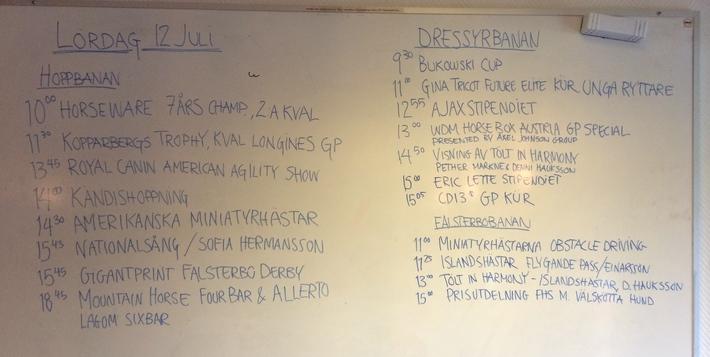 LÖRDAG 12 JULI
HOPPBANAN
10⁰⁰ HORSEWARE 7ÅRS CHAMP., 2A KVAL
11³⁰ KOPPARBERGS TROPHY, KVAL LONGINES GP
13⁴⁵ ROYAL CANIN AMERICAN AGILITY SHOW
14⁰⁰ KANDISHOPPNING
14³⁰ AMERIKANSKA MINIATYRHÄSTAR
15⁴³ NATIONALSÅNG / SOFIA HERMANSSON
15⁴⁵ GIGANTPRINT FALSTERBO DERBY
18⁴⁵ MOUNTAIN HORSE FOUR BAR & ALLERTO
LAGOM SIXBAR
DRESSYRBANAN
9³⁰ BUKOWSKI CUP
11⁰⁰ GINA TRICOT FUTURE ELITE KÜR UNGA RYTTARE
12⁵⁵ AJAXSTIPENDIET
13⁰⁰ WDM HORSE BOX AUSTRIA GP SPECIAL
PRESENTED BY AXEL JOHNSON GROUP
14⁵⁰ VISNING AV TÖLT IN HARMONY
PETHER MARKNE & DENNI HAUKSSON
15⁰⁰ ERIC LETTE STIPENDIET
15⁰⁵ CDI3* GP KÜR
FALSTERBOBANAN
11⁰⁰ MINIATYRHÄSTARNA OBSTACLE DRIVING
11²⁵ ISLANDSHÄSTAR FLYGANDE PASS/EINARSSON
13⁰⁰ TÖLT IN HARMONY - ISLANDSHÄSTAR, D. HAUKSSON
15⁰⁰ PRISUTDELNING FHS M. VÄLSKÖTTA HUND